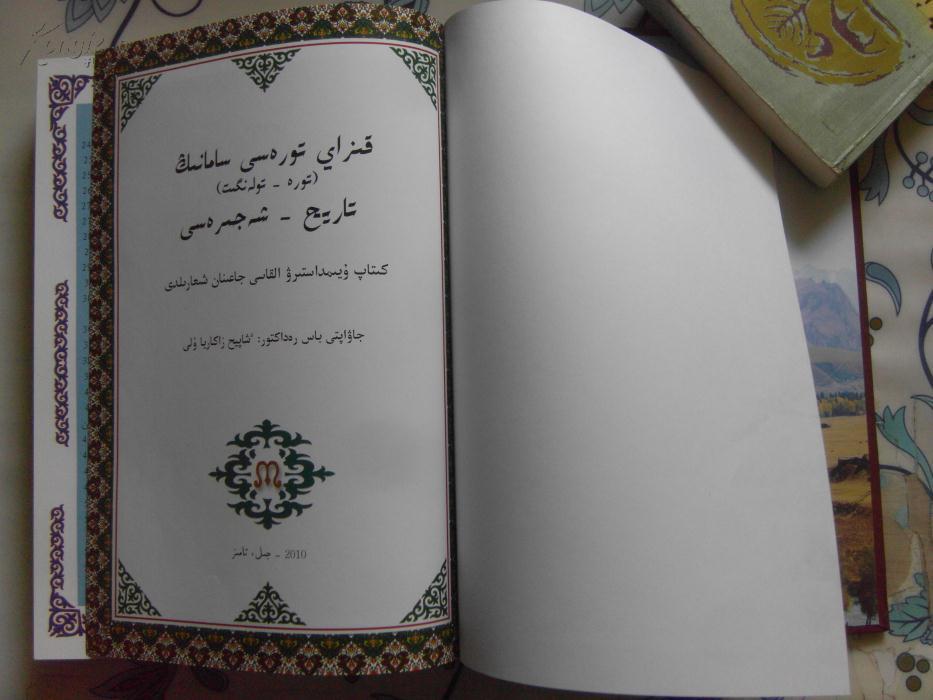 قىزاي تورەسى سامانىڭ
(تورە - تولەنگىت)
تاريح - شەجىرەسى
كىتاپ ۇيىمداستىرۋ القاسى جاعىنان شىعارىلدى
جاۋاپتى باس رەداكتور: ءشاپيح زاكاريا ۇلى
2010 - جىل، تامىز